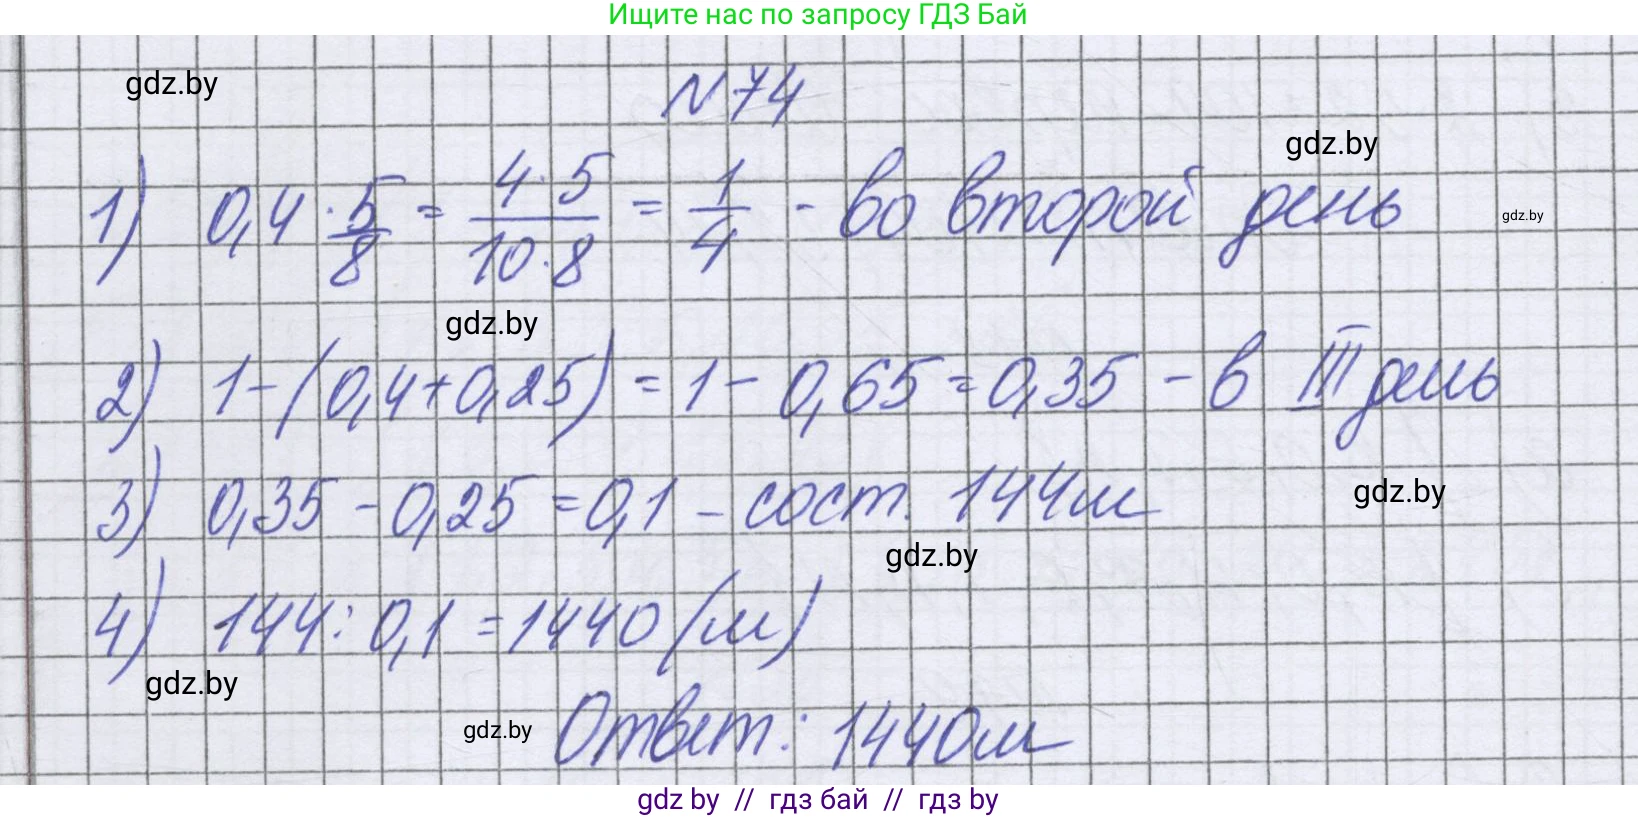 Ищите нас по запросу ГДЗ Бай
gdz.by
N74
gdz.by
1) 0,4 · 5/8 = 4·5/10·8 = 1/4 - во второй день
gdz.by
gdz.by
2) 1-(0,4+0,25) = 1 - 0,65 = 0,35 - в III день
3) 0,35 - 0,25 = 0,1 - сост. 144м
gdz.by
gdz.by
4) 144 : 0,1 = 1440 (м)
gdz.by
gdz.by
Ответ: 1440м
gdz by // гдз бай // gdz by